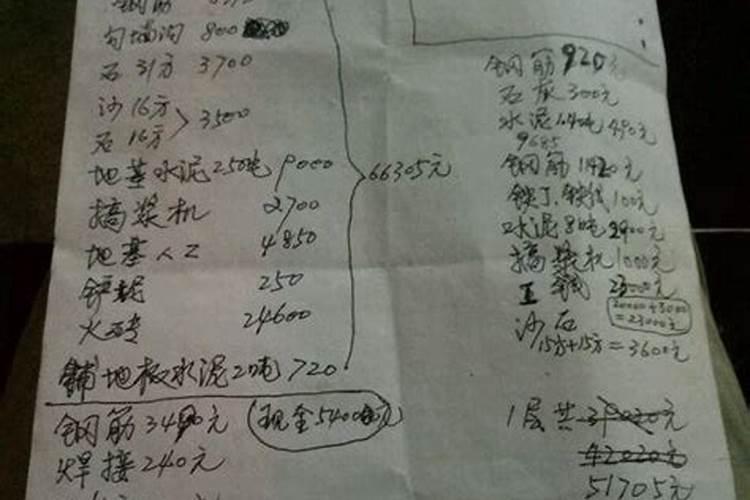 钢筋
勾墙沟 800
石31方 3700
沙16方
石16方 > 3500
地基水泥250吨 9000
搞浆机 2700
地基人工 4850
铲挖 250
火砖 24600
铺地板水泥2吨 720
66305元
钢筋3490元 (现金5400元)
焊接240元
钢筋920元
石灰300元
水泥 吨490元
9685
钢筋1420元
铁丁、铁线100元
水泥8吨2900元
搞浆机1000元
工钱23000元
20000+3000
=23000元
沙石
15方+15方=3600元
1层共39020元
42020元
51705元